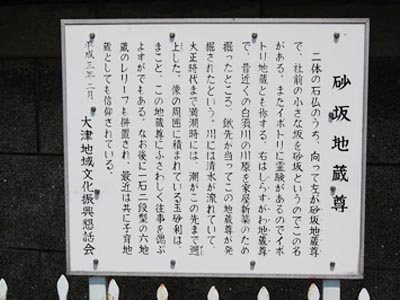 砂坂地蔵尊
二体の石仏のうち、向って左が砂坂地蔵尊
で、社前の小さな坂を砂坂というのでこの名
がある。またイボトリに霊験があるのでイボ
トリ地蔵とも称する。右はしらすがわ地蔵尊
で、昔近くの白須川の川原を家屋新築のため
掘ったところ、鍬先が当ってこの地蔵尊が発
掘されたという。川には清水が流れていて、
大正時代まで満潮時には、潮がこの先まで遡
上した。像の周囲に積まれている玉砂利は、
まこと、この地蔵尊にふさわしく往事を偲ぶ
よすがでもある。なお後に一石二段型の六地
蔵のレリーフも併置され、最近は共に子育地
蔵としても信仰されている。
平成三年二月
大津地域文化振興懇話会